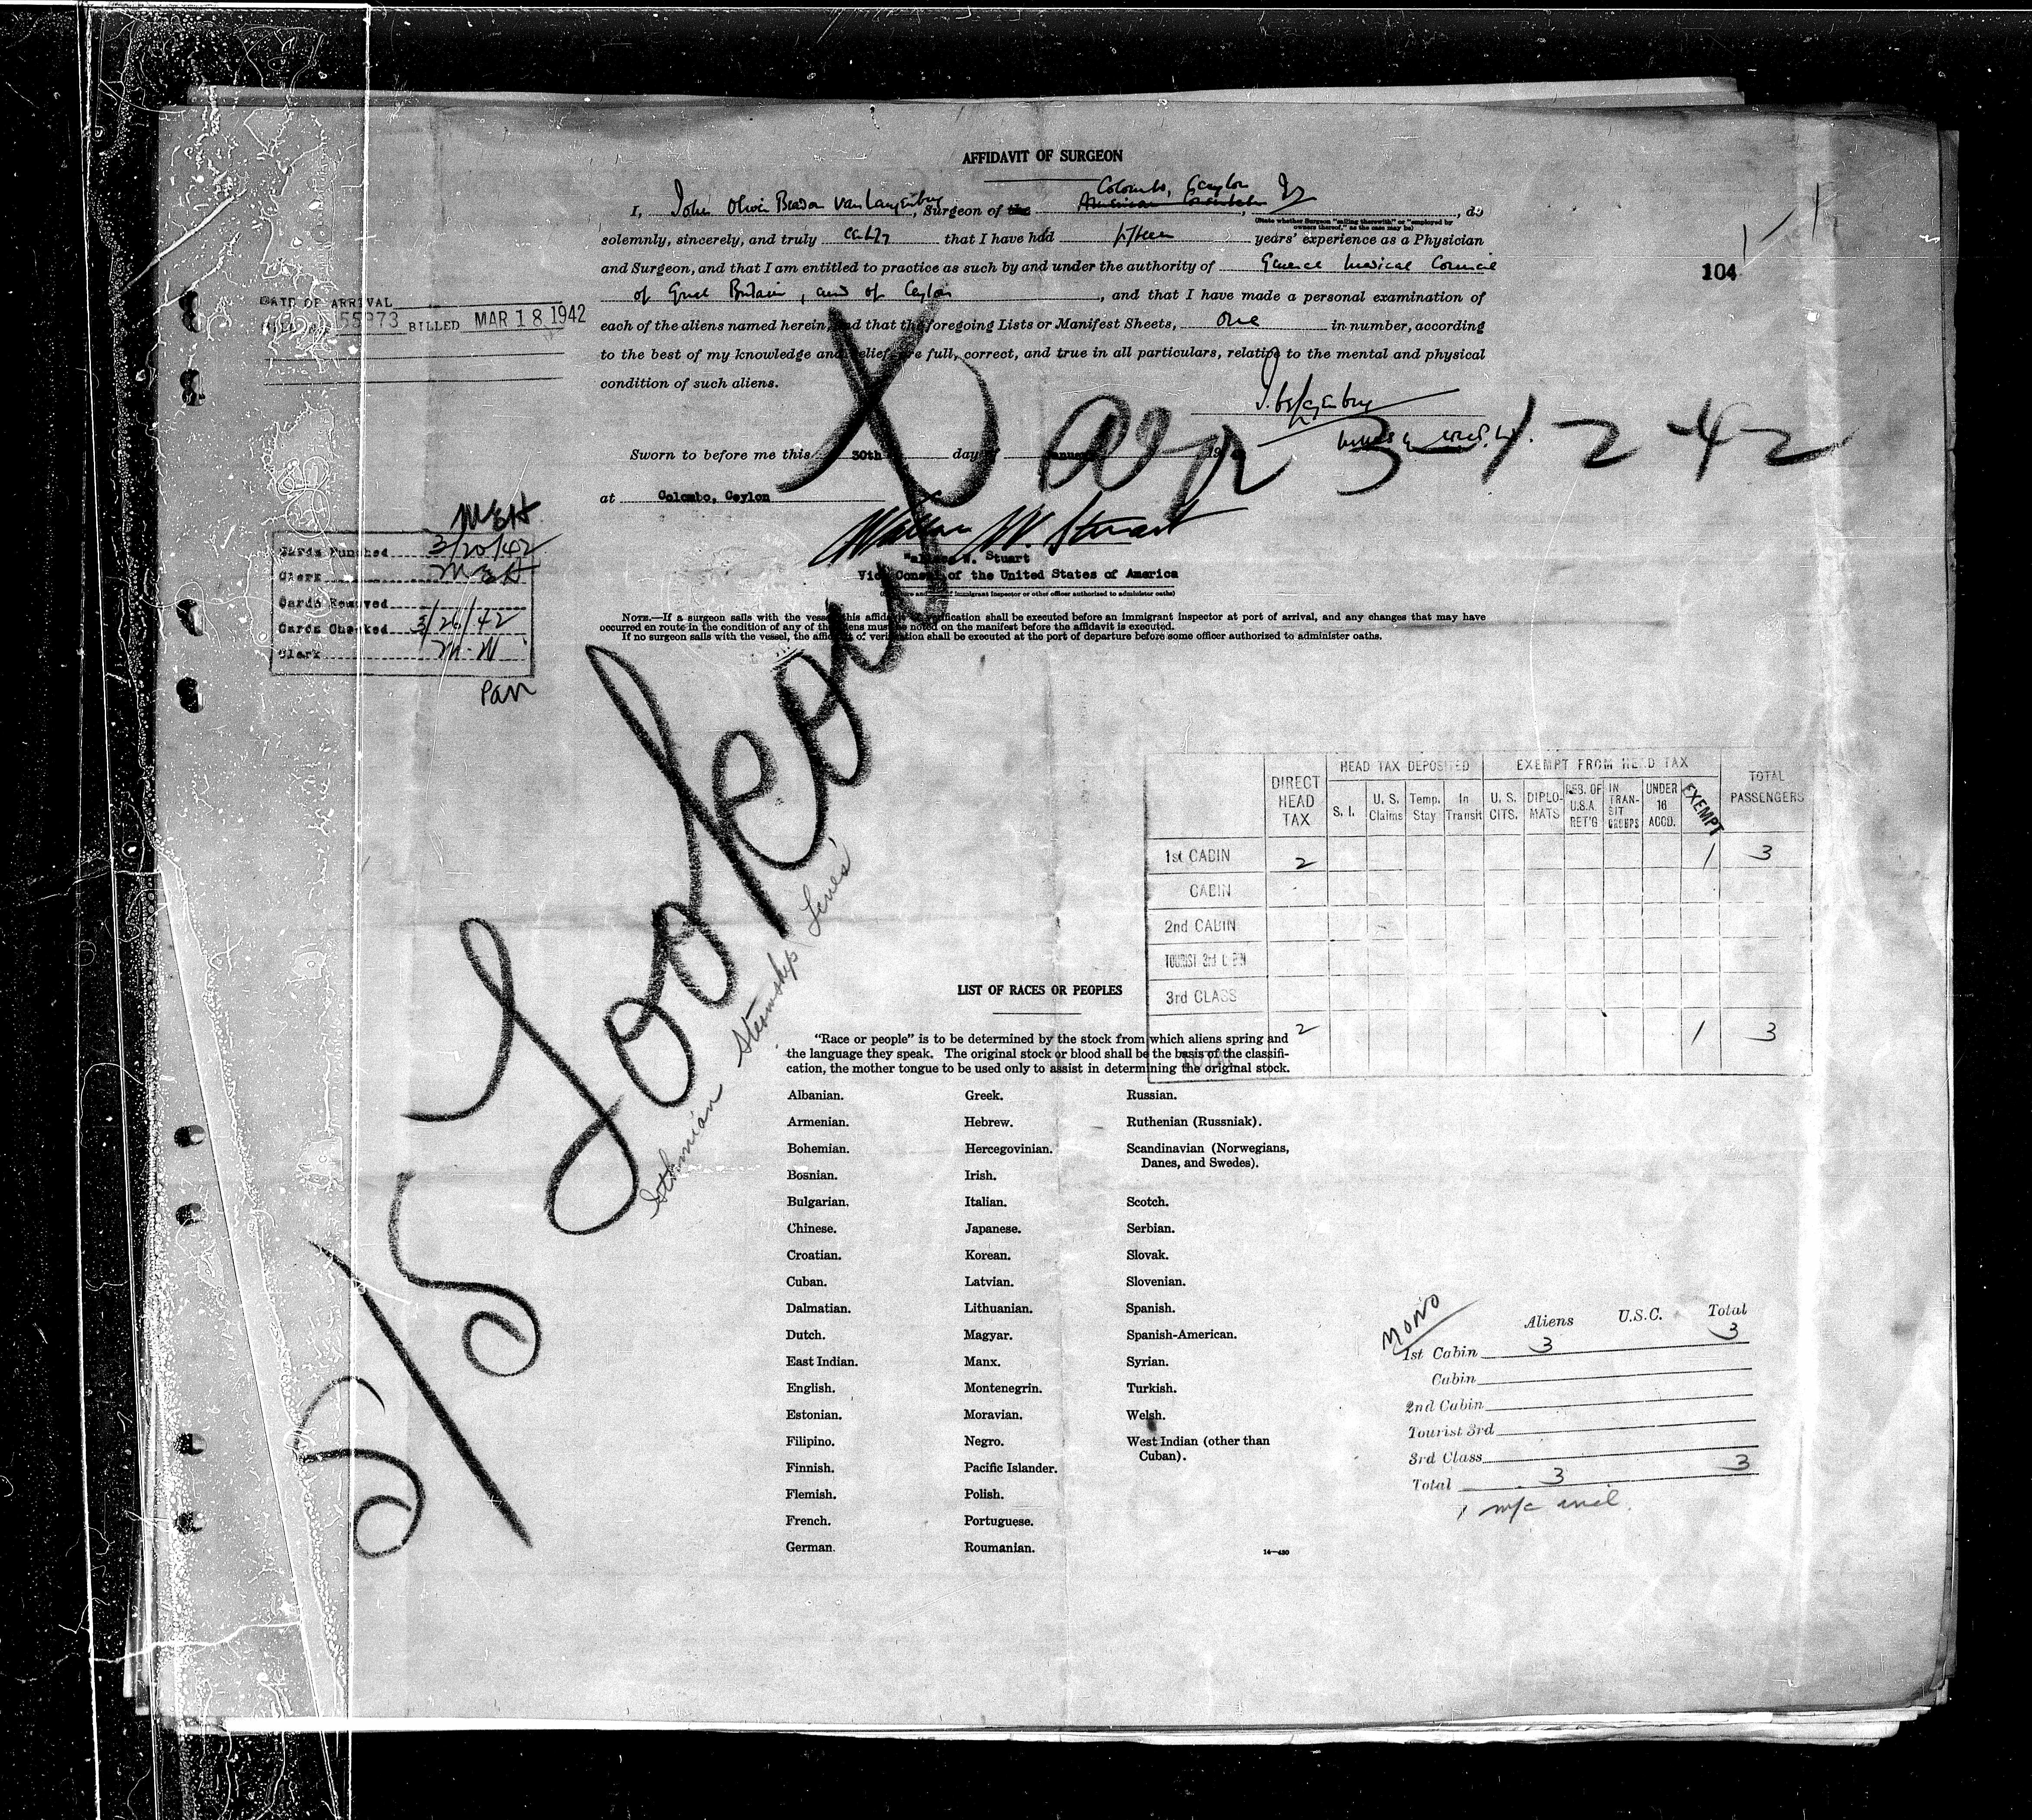 AFFIDAVIT OF SURGEON
Colombo, Ceylon
I, John Van Langenberg, Surgeon of the American Consulate, , do
(State whether Surgeon "sailing therewith" or "employed by owners thereof," as the case may be)
solemnly, sincerely, and truly that I have had years' experience as a Physician
and Surgeon, and that I am entitled to practice as such by and under the authority of General Medical Council
of Great Britain, and of Ceylon, and that I have made a personal examination of
each of the aliens named herein, and that the foregoing Lists or Manifest Sheets, one in number, according
to the best of my knowledge and belief, are full, correct, and true in all particulars, relative to the mental and physical
condition of such aliens.
104
DATE OF ARRIVAL
BILLED MAR 18 1942
Arr 3/12-42
Sworn to before me this 30th day of January 19
at Colombo, Ceylon
Wallace W. Stuart
Wallace W. Stuart
Vice Consul of the United States of America
(Signature and title of immigrant inspector or other officer authorized to administer oaths)
MEH
Cards Punched 3/20/42
Clerk MEH
Cards Removed
Cards Checked 3/26/42
Clerk M.M
Pan
NOTE.—If a surgeon sails with the vessel this affidavit of verification shall be executed before an immigrant inspector at port of arrival, and any changes that may have
occurred en route in the condition of any of the aliens must be noted on the manifest before the affidavit is executed.
If no surgeon sails with the vessel, the affidavit of verification shall be executed at the port of departure before some officer authorized to administer oaths.
S/S
Isthmian Steamship Lines
DIRECT HEAD TAX HEAD TAX DEPOSITED EXEMPT FROM HEAD TAX TOTAL PASSENGERS
S. I. U. S. Claims Temp. Stay In Transit U. S. CITS. DIPLOMATS RES. OF U.S.A. RET'G IN TRANSIT GROUPS UNDER 16 ACCD. EXEMPT
1st CABIN 2 1 3
CABIN
2nd CABIN
TOURIST 3rd CABIN
3rd CLASS
TOTAL 2 1 3
LIST OF RACES OR PEOPLES
"Race or people" is to be determined by the stock from which aliens spring and
the language they speak. The original stock or blood shall be the basis of the classifi-
cation, the mother tongue to be used only to assist in determining the original stock.
Albanian. Greek. Russian.
Armenian. Hebrew. Ruthenian (Russniak).
Bohemian. Hercegovinian. Scandinavian (Norwegians,
Danes, and Swedes).
Bosnian. Irish.
Bulgarian. Italian. Scotch.
Chinese. Japanese. Serbian.
Croatian. Korean. Slovak.
Cuban. Latvian. Slovenian.
Dalmatian. Lithuanian. Spanish.
Dutch. Magyar. Spanish-American.
East Indian. Manx. Syrian.
English. Montenegrin. Turkish.
Estonian. Moravian. Welsh.
Filipino. Negro. West Indian (other than
Cuban).
Finnish. Pacific Islander.
Flemish. Polish.
French. Portuguese.
German. Roumanian.
14—480
Aliens U.S.C. Total
1st Cabin 3 3
Cabin
2nd Cabin
Tourist 3rd
3rd Class
Total 3 3